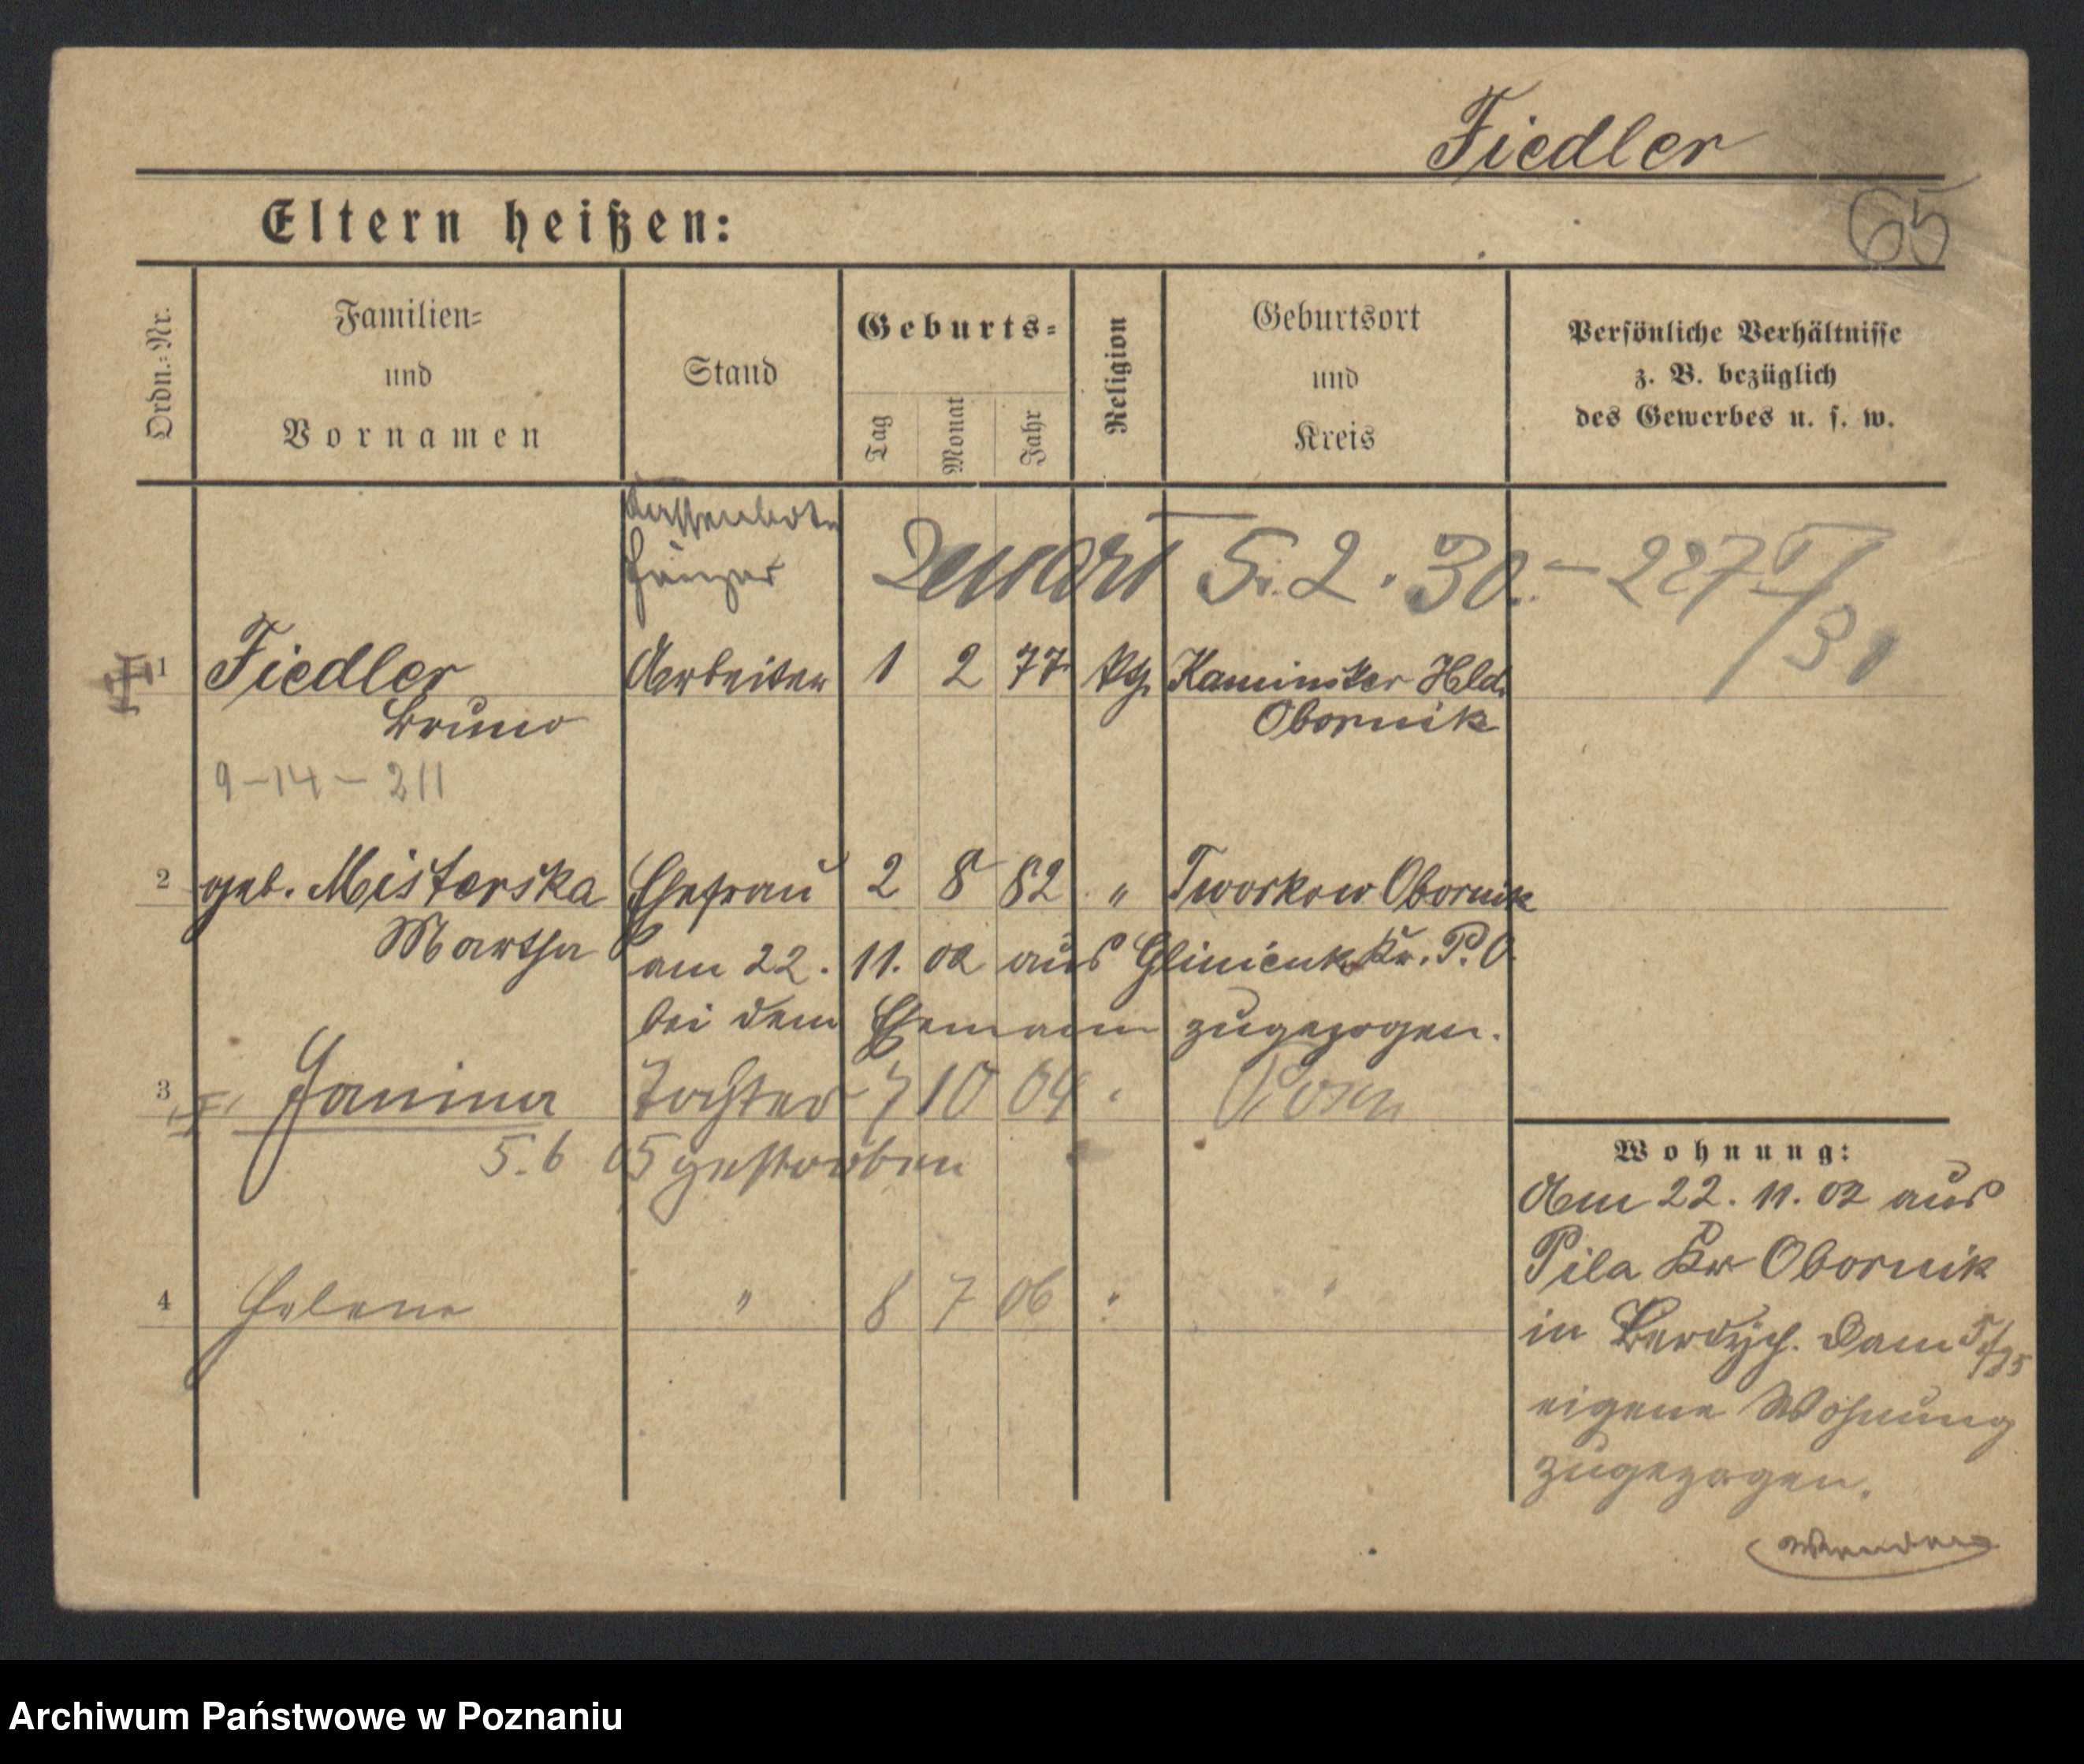 Fiedler
65
Eltern heißen:
Ordn.-Nr.
Familien-
und
Vornamen
Stand
Geburts-
Tag
Monat
Jahr
Religion
Geburtsort
und
Kreis
Persönliche Verhältnisse
z. B. bezüglich
des Gewerbes u. s. w.
Kassenbote
5. 2. 30. – 227
1 Fiedler Arbeiter 1 2 77 ktl. Kaminsker Hld.
Bruno Obornik
9–14–211
2 geb. Misterska Ehefrau 2 8 82 " Tworkowo Obornik
Martha am 22. 11. 02 aus Glinienko Kr. P. O.
bei dem Ehemann zugezogen.
3 Janina Tochter 7 10 04 " Posen
5. 6 05 gestorben
4 Helene " 8 7 06 " "
Wohnung:
Am 22. 11. 02 aus
Pila Kr Obornik
in Berdych. Dam
eigene Wohnung
zugezogen.
Archiwum Państwowe w Poznaniu